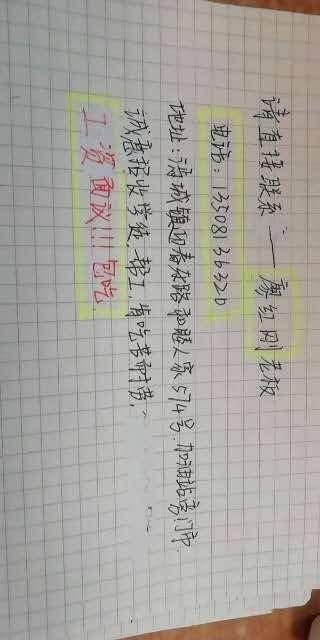 请直接联系——廖红刚老板
电话:13508136320
地址:清城镇迎春东路和睦人家574号.加油站旁门市.
诚意招收学徒.帮工,肯吃苦耐劳,
工资面议!!!包吃